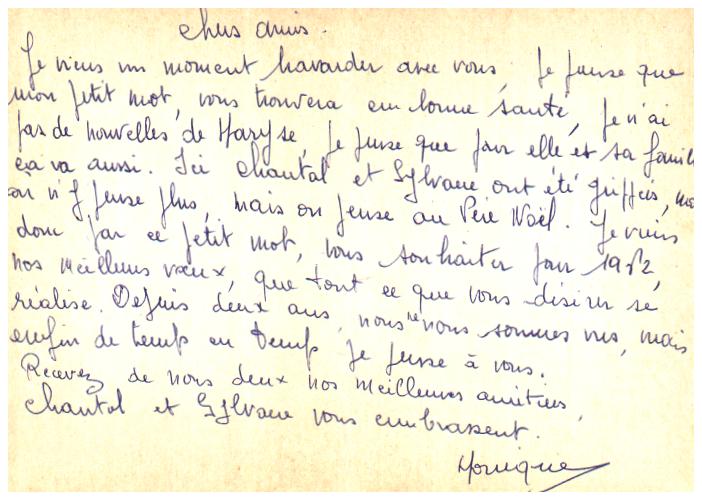 Chers amis.
Je viens un moment bavarder avec vous, Je pense que
mon petit mot, vous trouvera en bonne santé, Je n'ai
pas de nouvelles de Maryse, je pense que pour elle et sa famille
ça va aussi. Ici Chantal et Sylvane ont été grippés, mais
on n'y pense plus, mais on pense au Père Noël. Je viens
donc par ce petit mot, vous souhaiter pour 1982,
nos meilleurs vœux, que tout ce que vous désirer se
réalise. Depuis deux ans, nous ne nous sommes vus, mais
enfin de temps en temps je pense à vous.
Recevez de nous deux nos meilleures amitiés,
Chantal et Sylvane vous embrassent.
Monique